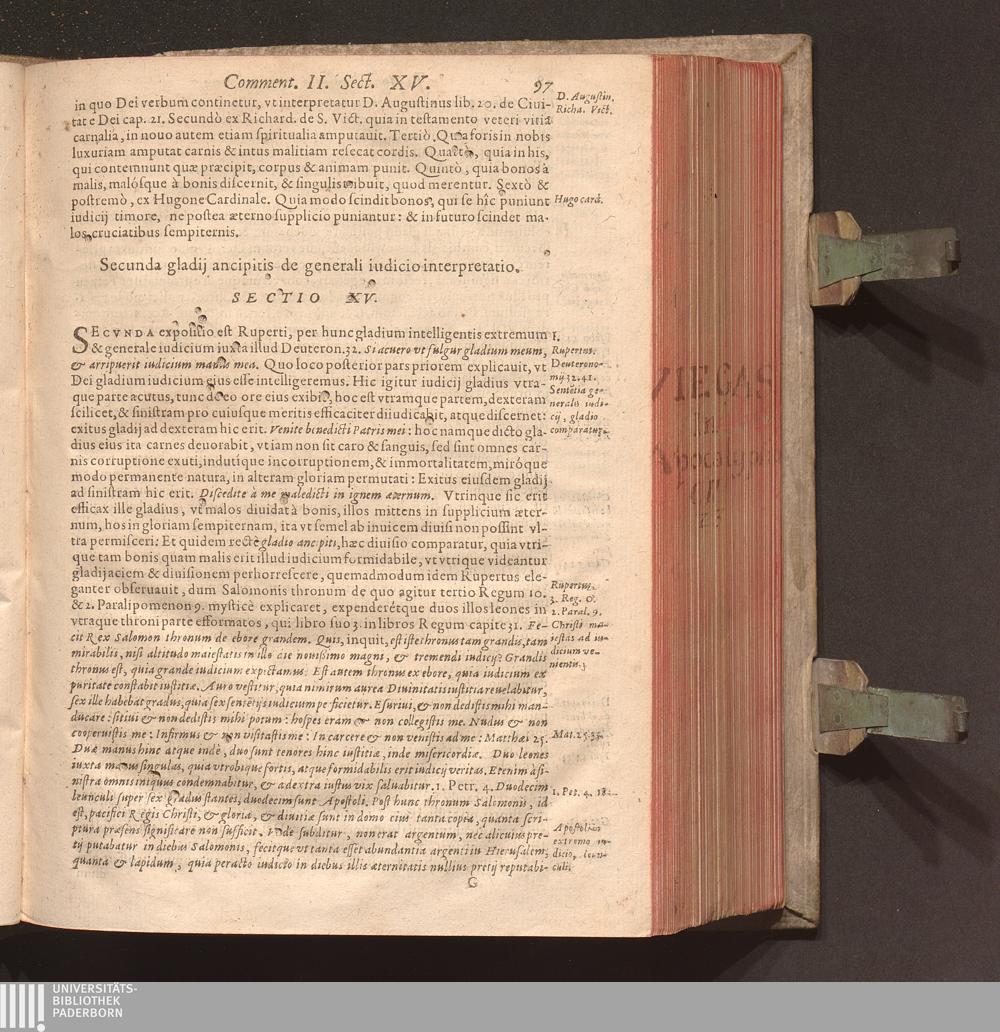 Comment. II. Sect. XV. 97
in quo Dei verbum continetur, vt interpretatur D. Augustinus lib. 20. de Ciui-
tate Dei cap. 21. Secundò ex Richard. de S. Vict. quia in testamento veteri vitia
carnalia, in nouo autem etiam spiritualia amputauit. Tertiò. Quia foris in nobis
luxuriam amputat carnis & intus malitiam resecat cordis. Quartò, quia in his,
qui contemnunt quæ præcipit, corpus & animam punit. Quintò, quia bonos à
malis, malósque à bonis discernit, & singulis tribuit, quod merentur. Sextò &
postremò, ex Hugone Cardinale. Quia modo scindit bonos, qui se hîc puniunt
iudicij timore, ne postea æterno supplicio puniantur: & in futuro scindet ma-
los cruciatibus sempiternis.
D. Augustin.
Richa. Vict.
Hugo card.
Secunda gladij ancipitis de generali iudicio interpretatio.
SECTIO XV.
SECVNDA expositio est Ruperti, per hunc gladium intelligentis extremum
& generale iudicium iuxta illud Deuteron. 32. Si acuero vt fulgur gladium meum,
& arripuerit iudicium manus mea. Quo loco posterior pars priorem explicauit, vt
Dei gladium iudicium eius esse intelligeremus. Hic igitur iudicij gladius vtra-
que parte acutus, tunc de eo ore eius exibit, hoc est vtramque partem, dexteram
scilicet, & sinistram pro cuiusque meritis efficaciter diiudicabit, atque discernet:
exitus gladij ad dexteram hic erit. Venite benedicti Patris mei: hoc namque dicto gla-
dius eius ita carnes deuorabit, vt iam non sit caro & sanguis, sed sint omnes car-
nis corruptione exuti, indutique incorruptionem, & immortalitatem, miróque
modo permanente natura, in alteram gloriam permutati: Exitus eiusdem gladij
ad sinistram hic erit. Discedite à me maledicti in ignem æternum. Vtrinque sic erit
efficax ille gladius, vt malos diuidat à bonis, illos mittens in supplicium æter-
num, hos in gloriam sempiternam, ita vt semel ab inuicem diuisi non possint vl-
tra permisceri: Et quidem rectè gladio ancipiti, hæc diuisio comparatur, quia vtri-
que tam bonis quam malis erit illud iudicium formidabile, vt vtrique videantur
gladij aciem & diuisionem perhorrescere, quemadmodum idem Rupertus ele-
ganter obseruauit, dum Salomonis thronum de quo agitur tertio Regum 10.
& 2. Paralipomenon 9. mysticè explicaret, expenderétque duos illos leones in
vtraque throni parte efformatos, qui libro suo 3. in libros Regum capite 31. Fe-
cit Rex Salomon thronum de ebore grandem. Quis, inquit, est iste thronus tam grandis, tam
mirabilis, nisi altitudo maiestatis in illo die nouissimo magni, & tremendi iudicij? Grandis
thronus est, quia grande iudicium expectamus: Est autem thronus ex ebore, quia iudicium ex
puritate constabit iustitiæ. Auro vestitur, quia nimirum aurea Diuinitatis iustitia reuelabitur,
sex ille habebat gradus, quia sex sententijs iudicium perficietur. Esuriui, & non dedistis mihi man-
ducare: sitiui & non dedistis mihi potum: hospes eram & non collegistis me. Nudus & non
cooperuistis me: Infirmus & non visitastis me: In carcere & non venistis ad me: Matthæi 25.
Duæ manus hinc atque inde, duo sunt tenores hinc iustitiæ, inde misericordiæ. Duo leones
iuxta manus singulas, quia vtrobique fortis, atque formidabilis erit iudicij veritas. Etenim à si-
nistra omnis iniquus condemnabitur, & a dextra iustus vix saluabitur. 1. Petr. 4. Duodecim
leunculi super sex gradus stantes, duodecim sunt Apostoli. Post hunc thronum Salomonis, id
est, pacifici Regis Christi, & gloria, & diuitiæ sunt in domo eius tanta copia, quanta scri-
ptura præsens significare non sufficit. Vnde subditur, non erat argentum, nec alicuius pre-
tij putabatur in diebus Salomonis, fecitque vt tanta esset abundantia argenti in Hierusalem,
quanta & lapidum, quia peracto iudicio in diebus illis æternitatis nullius pretij reputabi-
G
1.
Rupertus.
Deuterono-
mij 32. 41.
Sentẽtia ge-
neralis iudi-
cij, gladio
comparatur.
Rupertus.
3. Reg. 
2. Paral. 9.
Christi ma-
iestas ad iu-
dicium ve-
nientis.
Mat. 25. 35.
1. Pet. 4. 18.
Apostoli in
extremo iu-
dicio, leun-
culi.
VIEGAS
In
Apocalipsin
UNIVERSITÄTS-
BIBLIOTHEK
PADERBORN